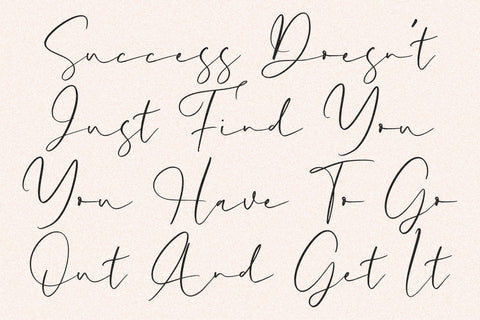 Success Doesn't
Just Find You
You Have To Go
Out And Get It